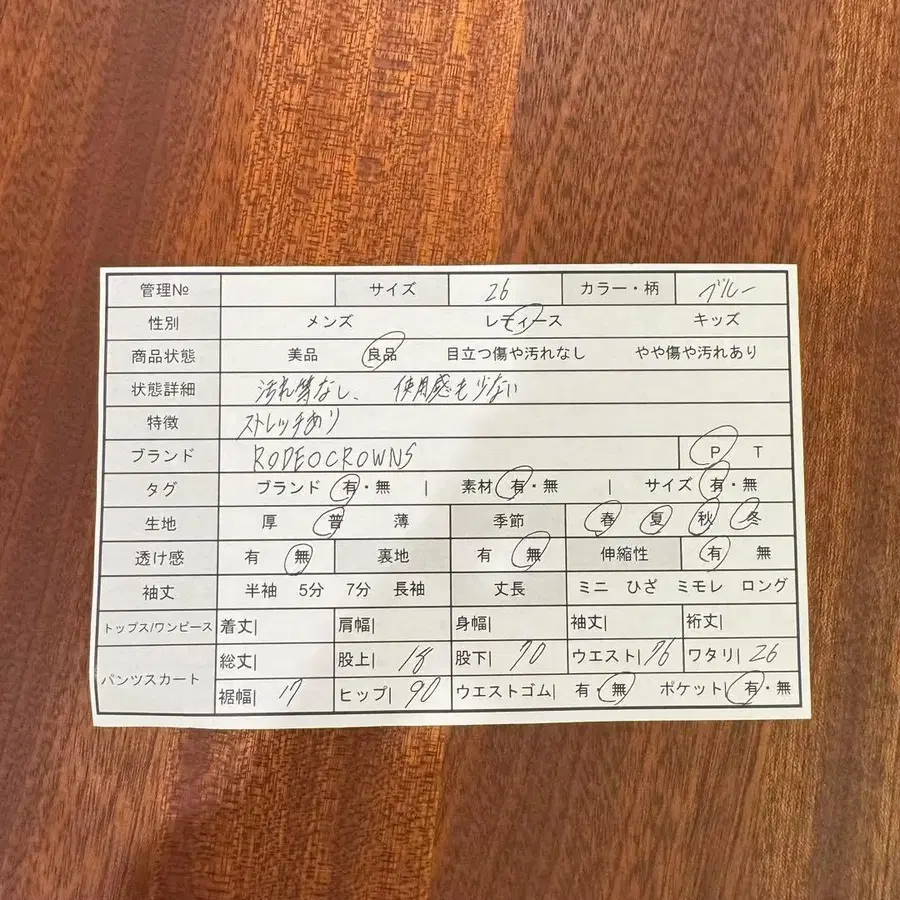 管理№ サイズ 26 カラー・柄 ブルー
性別 メンズ レディース キッズ
商品状態 美品 良品 目立つ傷や汚れなし やや傷や汚れあり
状態詳細 汚れ等なし、使用感も少ない
特徴 ストレッチあり
ブランド RODEOCROWNS P T
タグ ブランド 有・無 | 素材 有・無 | サイズ 有・無
生地 厚 普 薄 季節 春 夏 秋 冬
透け感 有 無 裏地 有 無 伸縮性 有 無
袖丈 半袖 5分 7分 長袖 丈長 ミニ ひざ ミモレ ロング
トップス/ワンピース 着丈| 肩幅| 身幅| 袖丈| 裄丈|
パンツスカート 総丈| 股上| 18 股下| 70 ウエスト| 76 ワタリ| 26
裾幅| 17 ヒップ| 90 ウエストゴム| 有・無 ポケット| 有・無